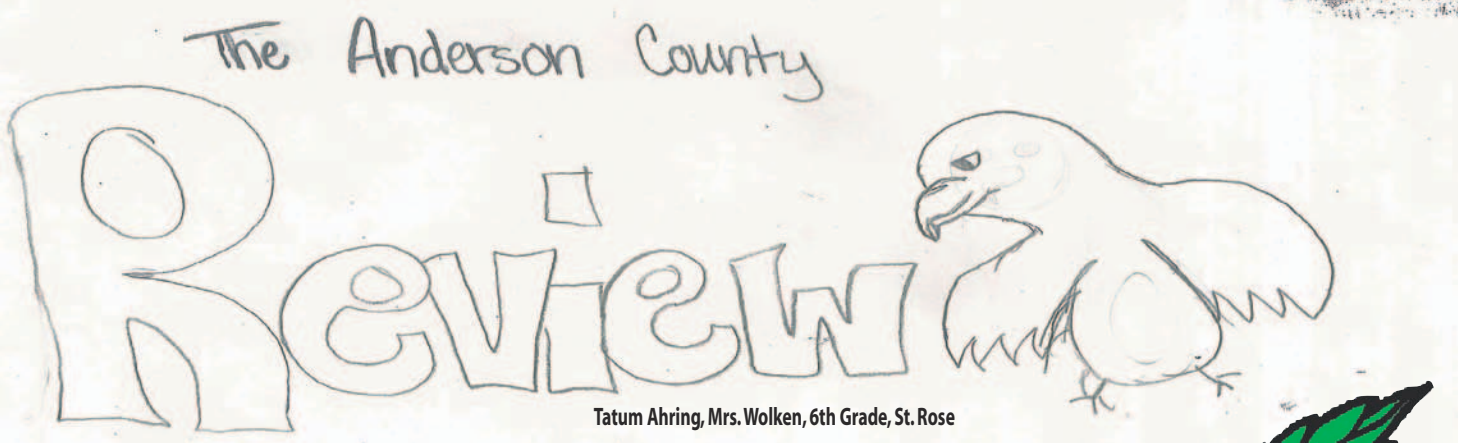 The Anderson County
Review
Tatum Ahring, Mrs. Wolken, 6th Grade, St. Rose